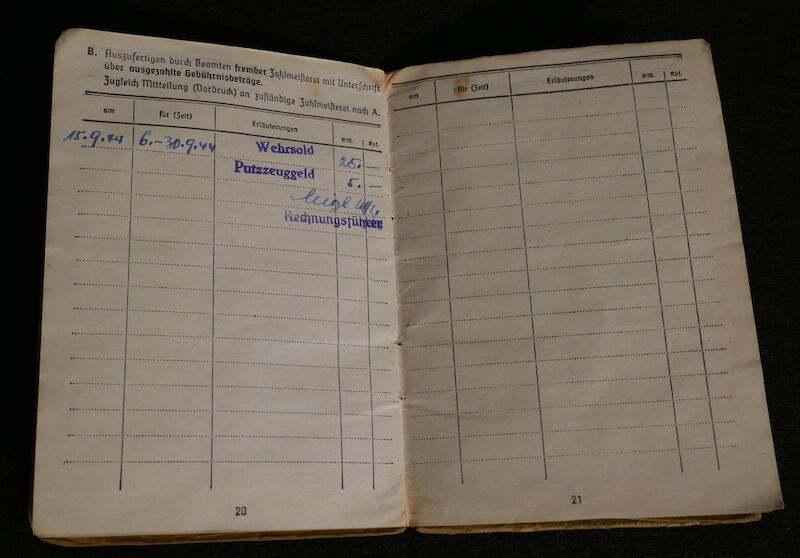 B. Auszufertigen durch Beamten fremder Zahlmeisterei mit Unterschrift
über ausgezahlte Gebührnisbeträge.
Zugleich Mitteilung (Vordruck) an zuständige Zahlmeisterei nach A.
am für (Zeit) Erläuterungen RM. Rpf.
15.9.44 6.–30.9.44 Wehrsold 25.–
Putzzeuggeld 5.–
Rechnungsführer
20
am für (Zeit) Erläuterungen RM. Rpf.
21